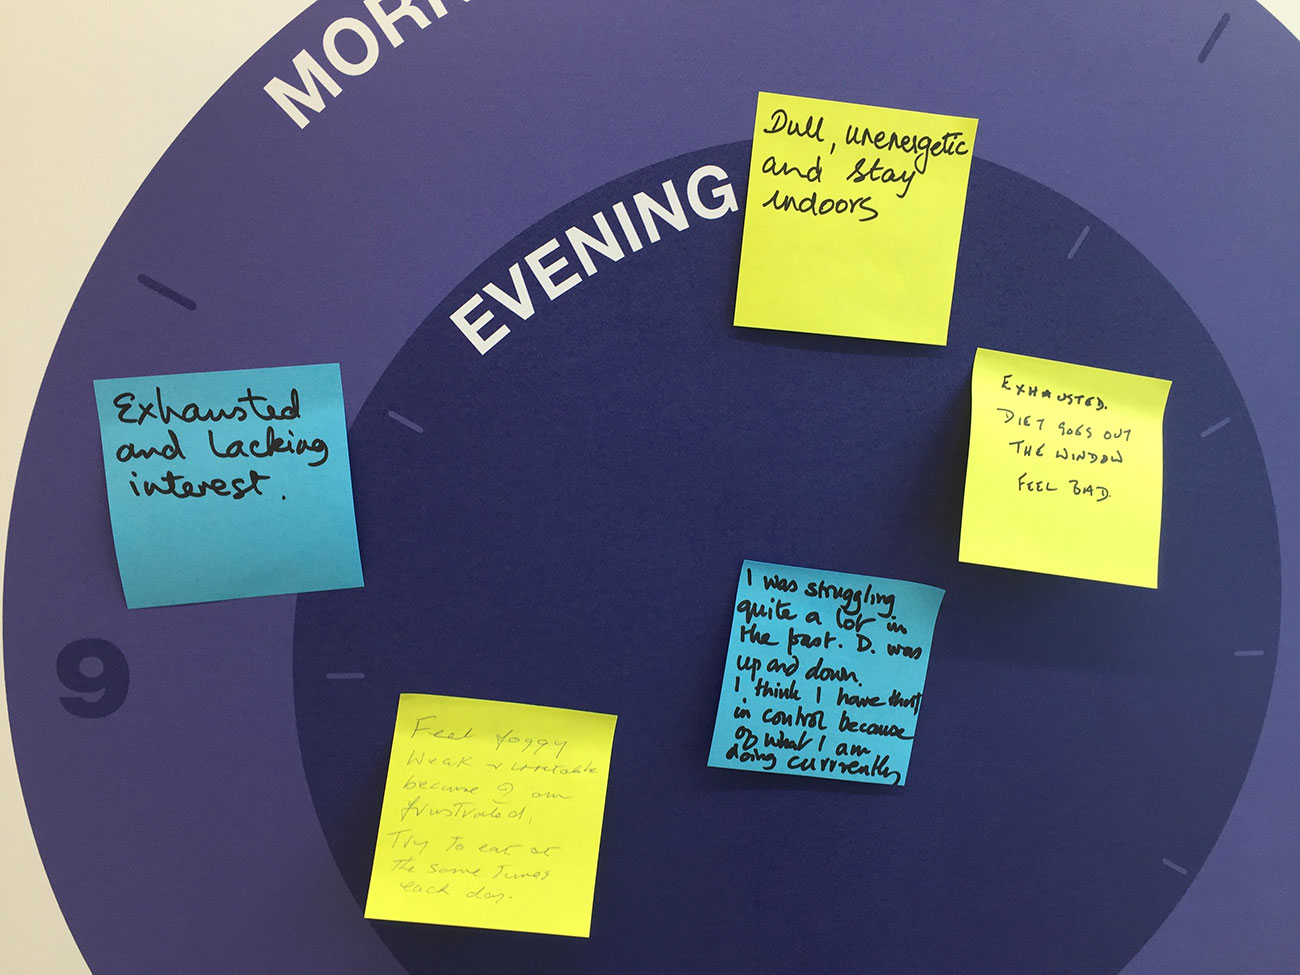 MORN
EVENING
Dull, unenergetic
and stay
indoors
Exhausted
and lacking
interest.
EXHAUSTED.
DIET GOES OUT
THE WINDOW
FEEL BAD.
9
I was struggling
quite a lot in
the past. D. was
up and down.
I think I have that
in control because
of what I am
doing currently
Feel foggy
Weak & irritable
because I am
frustrated,
Try to eat at
the same times
each day.